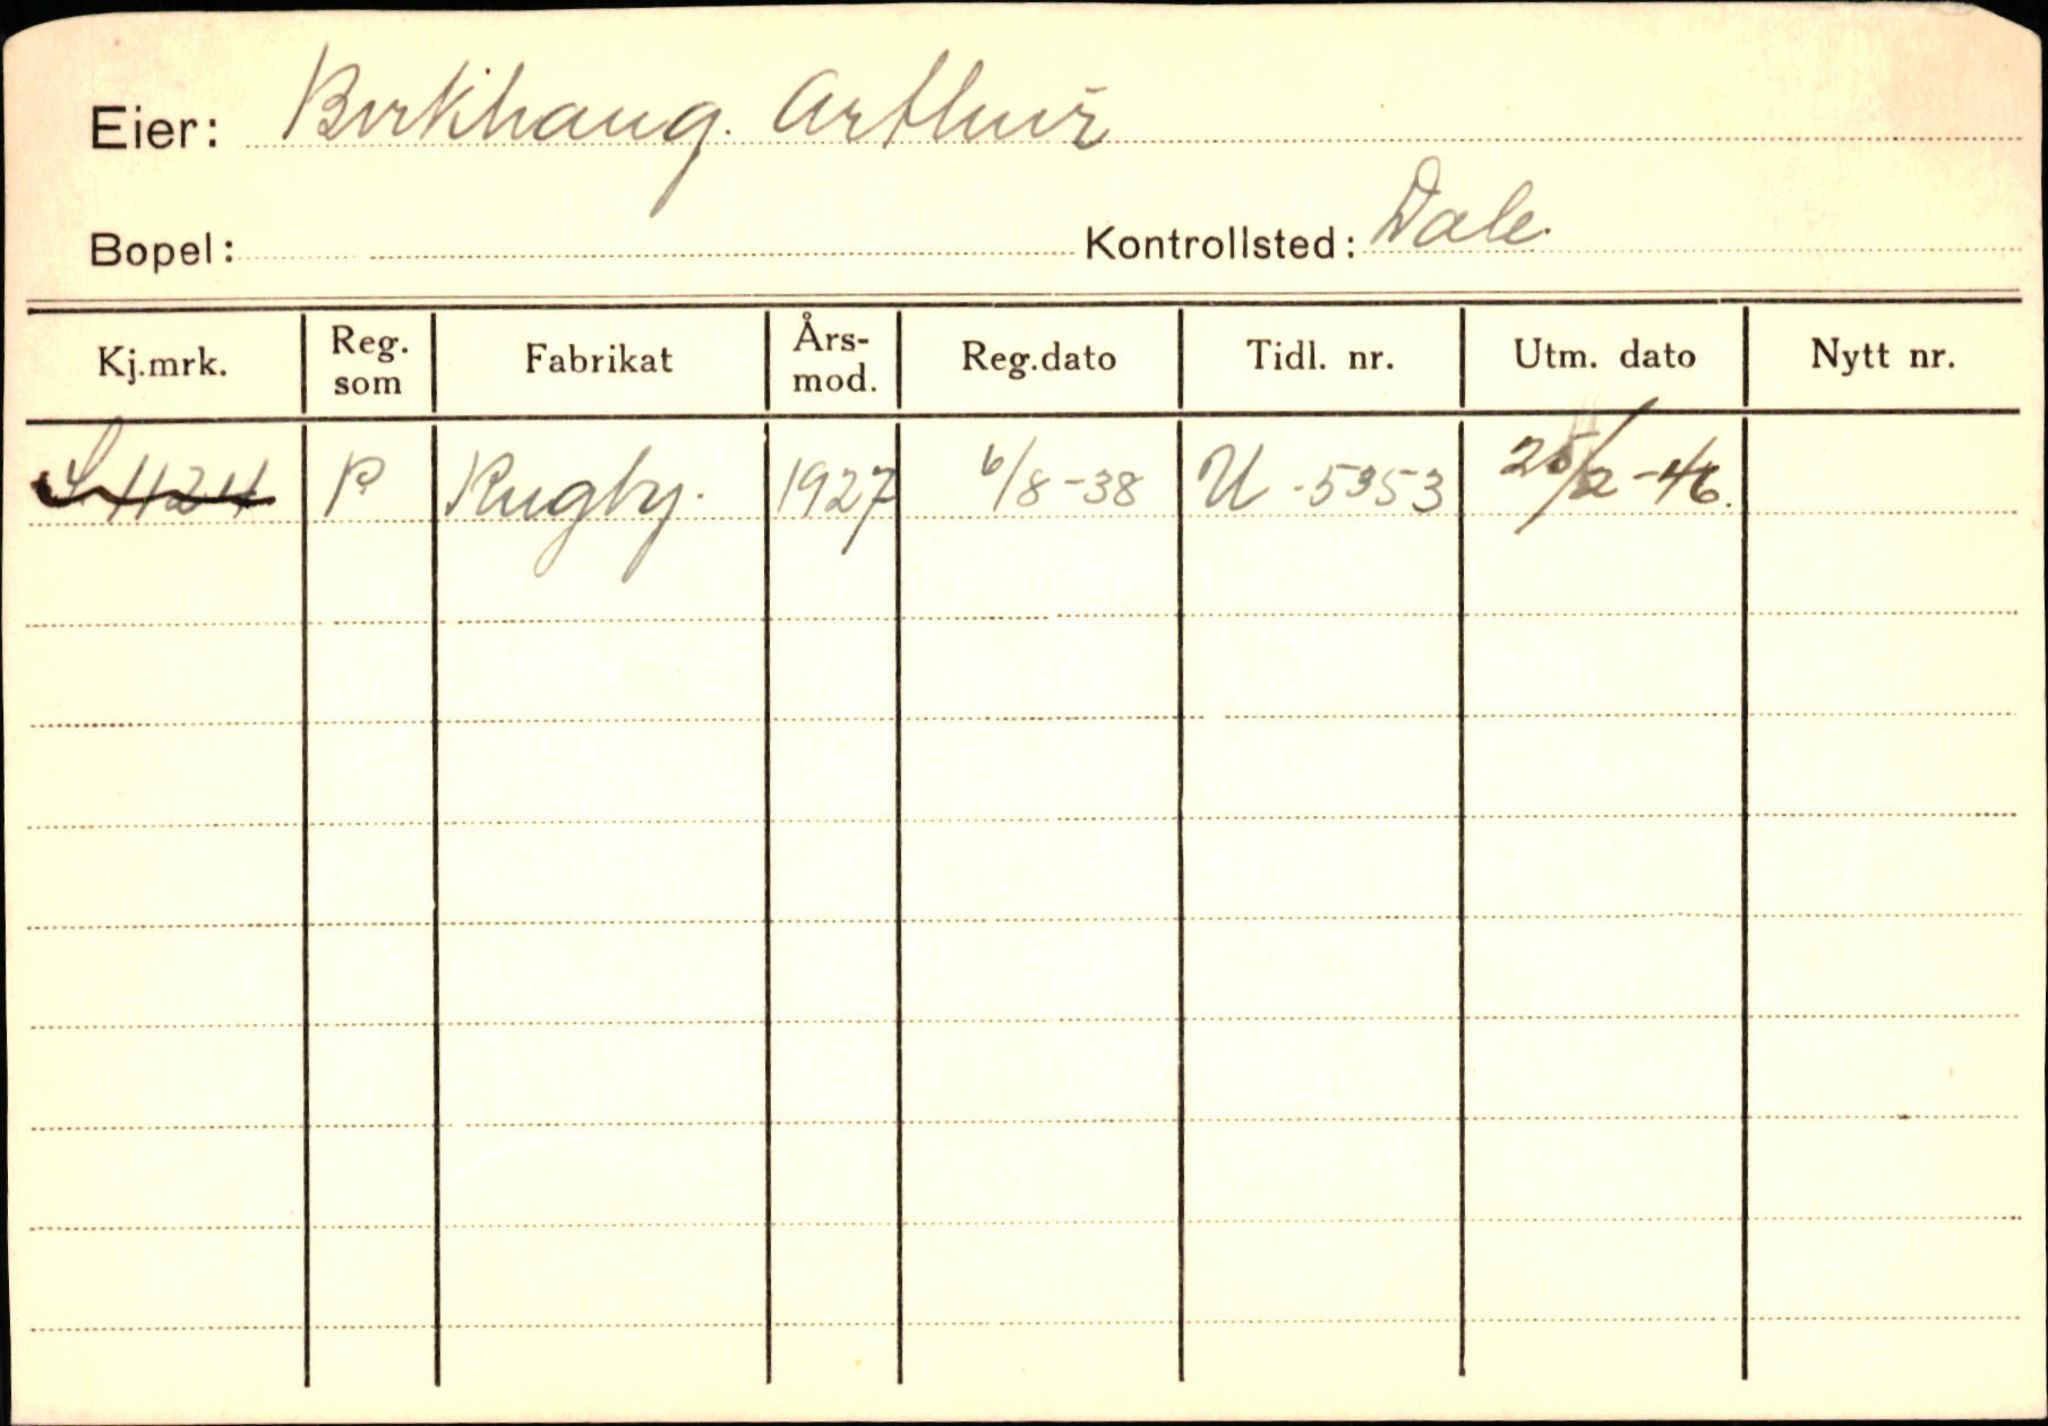 Eier: Birkhaug. Arthur
Bopel: Kontrollsted: Dale.
Kj.mrk. Reg. som Fabrikat Års-mod. Reg.dato Tidl. nr. Utm. dato Nytt nr.
S-1124 P Rugby. 1927 6/8-38 U-5353 25/2-46.